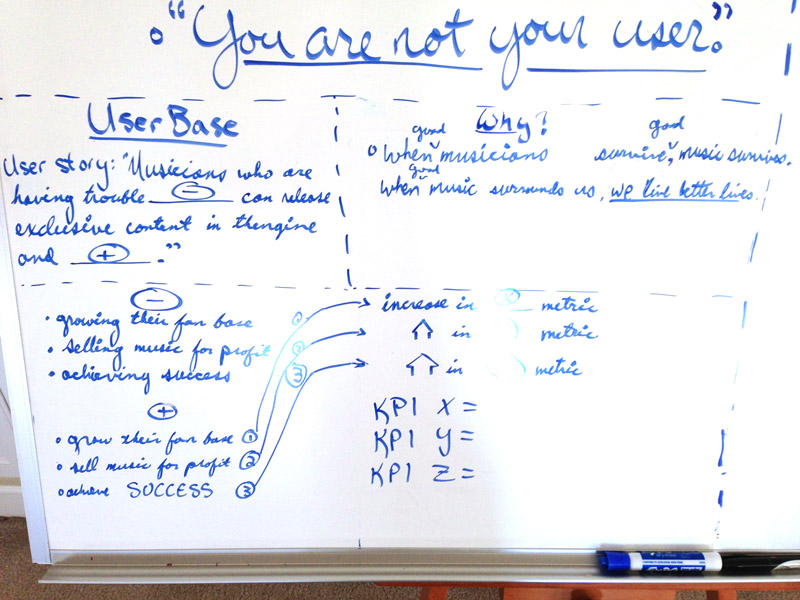 "You are not your user."
User Base
User story: "Musicians who are
having trouble ⊖ can release
exclusive content in thengine
and ⊕ ."
Why?
good good
when musicians survive, music survives.
good
when music surrounds us, we live better lives.
⊖
• growing their fan base
• selling music for profit
• achieving success
⊕
• grow their fan base ①
• sell music for profit ②
• achieve SUCCESS ③
③
increase in metric
⇧ in metric
⇧ in metric
KPI X =
KPI Y =
KPI Z =